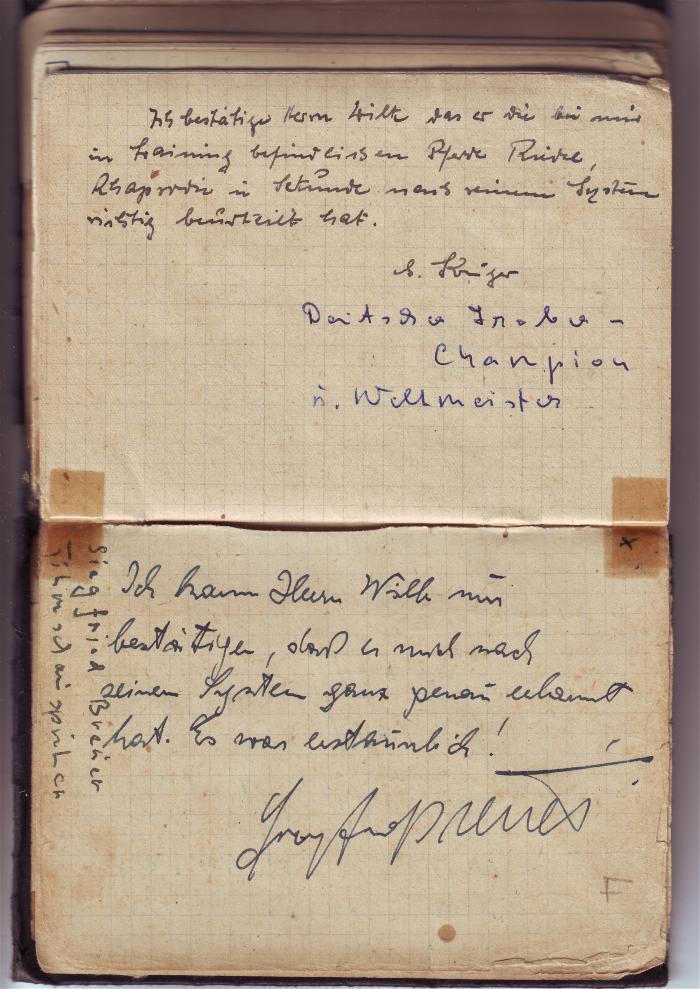 Ich bestätige Herrn Wilk das er die bei mir
in Training befindlichen Pferde
Rhapsodie in Sekunde nach seinem System
richtig beurteilt hat.
Deutscher Traber-
Champion
u. Weltmeister
Ich kann Herrn Wilk nur
bestätigen, daß er mich nach
seinem System ganz genau erkannt
hat. Es war erstaunlich!
Siegfried Breuer
Filmschauspieler
x
F